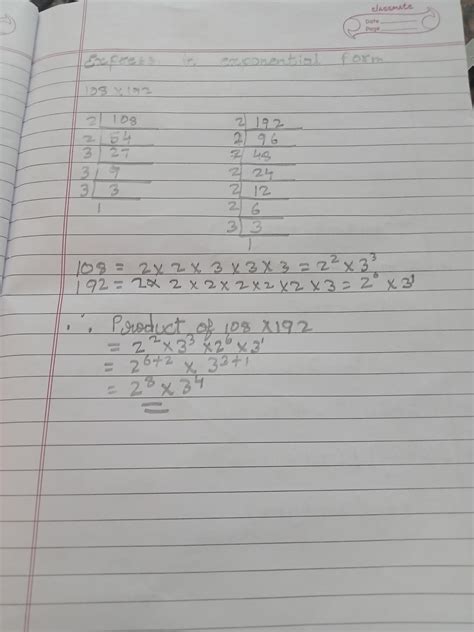 classmate
Date
Page
Express in exponential form
108 × 192
2 | 108
2 | 54
3 | 27
3 | 9
3 | 3
1
2 | 192
2 | 96
2 | 48
2 | 24
2 | 12
2 | 6
3 | 3
1
108 = 2 × 2 × 3 × 3 × 3 = 2² × 3³
192 = 2 × 2 × 2 × 2 × 2 × 2 × 3 = 2⁶ × 3¹
∴ Product of 108 × 192
= 2² × 3³ × 2⁶ × 3¹
= 2⁶⁺² × 3³⁺¹
= 2⁸ × 3⁴